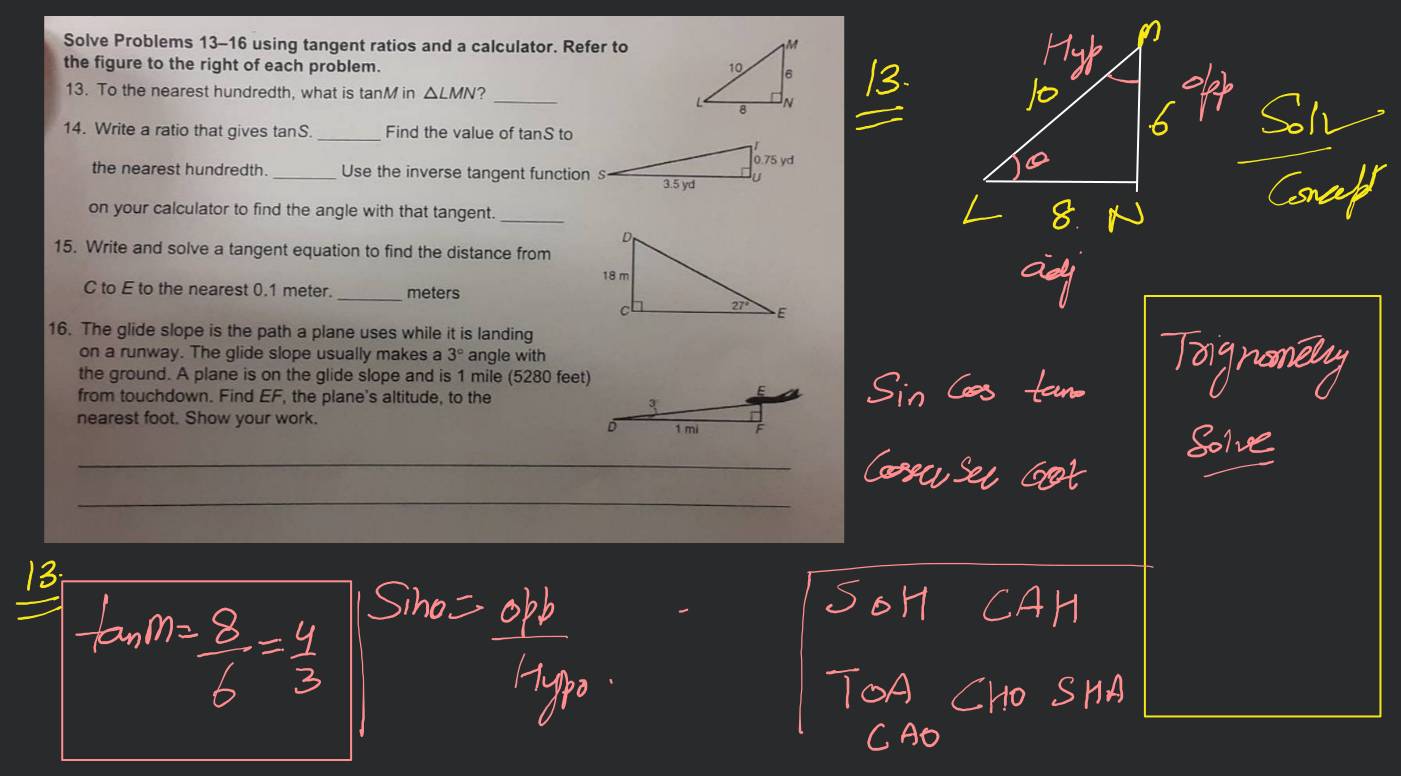 Solve Problems 13–16 using tangent ratios and a calculator. Refer to
the figure to the right of each problem.
13. To the nearest hundredth, what is tanM in △LMN? ______
14. Write a ratio that gives tanS. ______ Find the value of tanS to
the nearest hundredth. ______ Use the inverse tangent function
on your calculator to find the angle with that tangent. ______
15. Write and solve a tangent equation to find the distance from
C to E to the nearest 0.1 meter. ______ meters
16. The glide slope is the path a plane uses while it is landing
on a runway. The glide slope usually makes a 3° angle with
the ground. A plane is on the glide slope and is 1 mile (5280 feet)
from touchdown. Find EF, the plane's altitude, to the
nearest foot. Show your work.
M
10
6
L
8
N
0.75 yd
S
3.5 yd
U
D
18 m
C
27°
E
E
3°
D
1 mi
F
13.
M
Hyp
10
opp
6
θ
L 8 N
adj
Solv
Concept
Sin Cos tan
Cosec Sec Cot
Trignometry
Solve
13.
tanM = 8/6 = 4/3
Sinθ = opp
Hypo.
SOH CAH
TOA CHO SHA
CAO